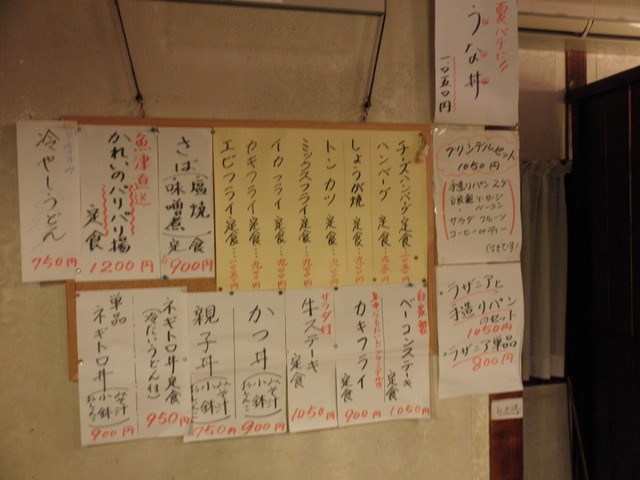 夏バテに!!
うな丼
一〇五〇円
チーズハンバーグ定食
ハンバーグ 定食
しょうが焼 定食
トンカツ 定食
ミックスフライ定食
イカフライ 定食
カキフライ定食
エビフライ定食
さば(塩焼
味噌煮)定食
900円
魚津直送
かれいのパリパリ揚
定食
1200円
冷やしうどん
750円
1050円
手造りパン
サラダ フルーツ
ラザニアと
手造りパン
のセット
1050円
ラザニア単品
800円
自家製
ベーコンステーキ
定食
1050円
カキフライ
定食
900円
サラダ付
牛ステーキ
定食
1050円
かつ丼
(みそ汁
小鉢
おしんこ)
900円
親子丼
(みそ汁
小鉢
おしんこ)
750円
ネギトロ丼定食
(冷たいうどん付)
950円
単品
ネギトロ丼
(みそ汁
小鉢
おしんこ)
900円